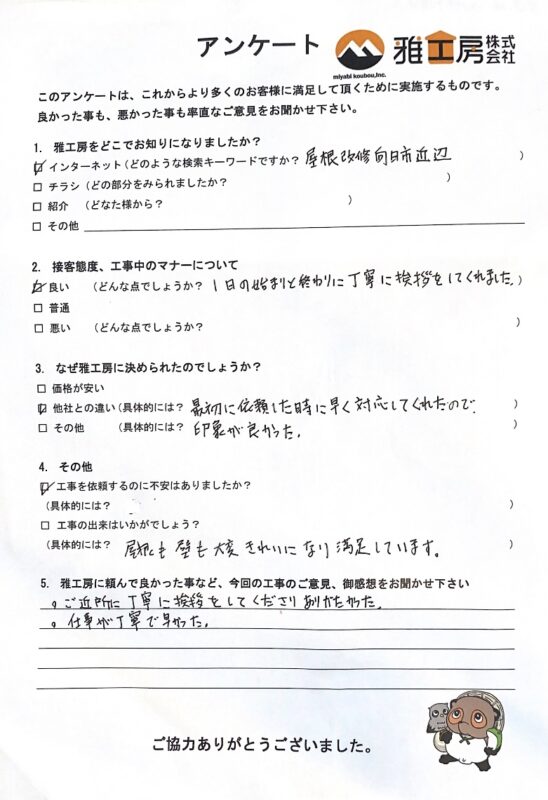 アンケート 雅工房 株式会社
miyabi koubou,Inc.
このアンケートは、これからより多くのお客様に満足して頂くために実施するものです。
良かった事も、悪かった事も率直なご意見をお聞かせ下さい。
1. 雅工房をどこでお知りになりましたか？
☑ インターネット（どのような検索キーワードですか？ 屋根改修向日市近辺 ）
□ チラシ（どの部分をみられましたか？ ）
□ 紹介 （どなた様から？ ）
□ その他
2. 接客態度、工事中のマナーについて
☑ 良い （どんな点でしょうか？ 1日の始まりと終わりに丁寧に挨拶をしてくれました。）
□ 普通
□ 悪い （どんな点でしょうか？ ）
3. なぜ雅工房に決められたのでしょうか？
□ 価格が安い
☑ 他社との違い（具体的には？ 最初に依頼した時に早く対応してくれたので ）
□ その他 （具体的には？ 印象が良かった。 ）
4. その他
☑ 工事を依頼するのに不安はありましたか？
（具体的には？ ）
□ 工事の出来はいかがでしょう？
（具体的には？ 屋根も壁も大変きれいになり満足しています。 ）
5. 雅工房に頼んで良かった事など、今回の工事のご意見、御感想をお聞かせ下さい
。ご近所に丁寧に挨拶をしてくださりありがたかった。
。仕事が丁寧で早かった。
ご協力ありがとうございました。